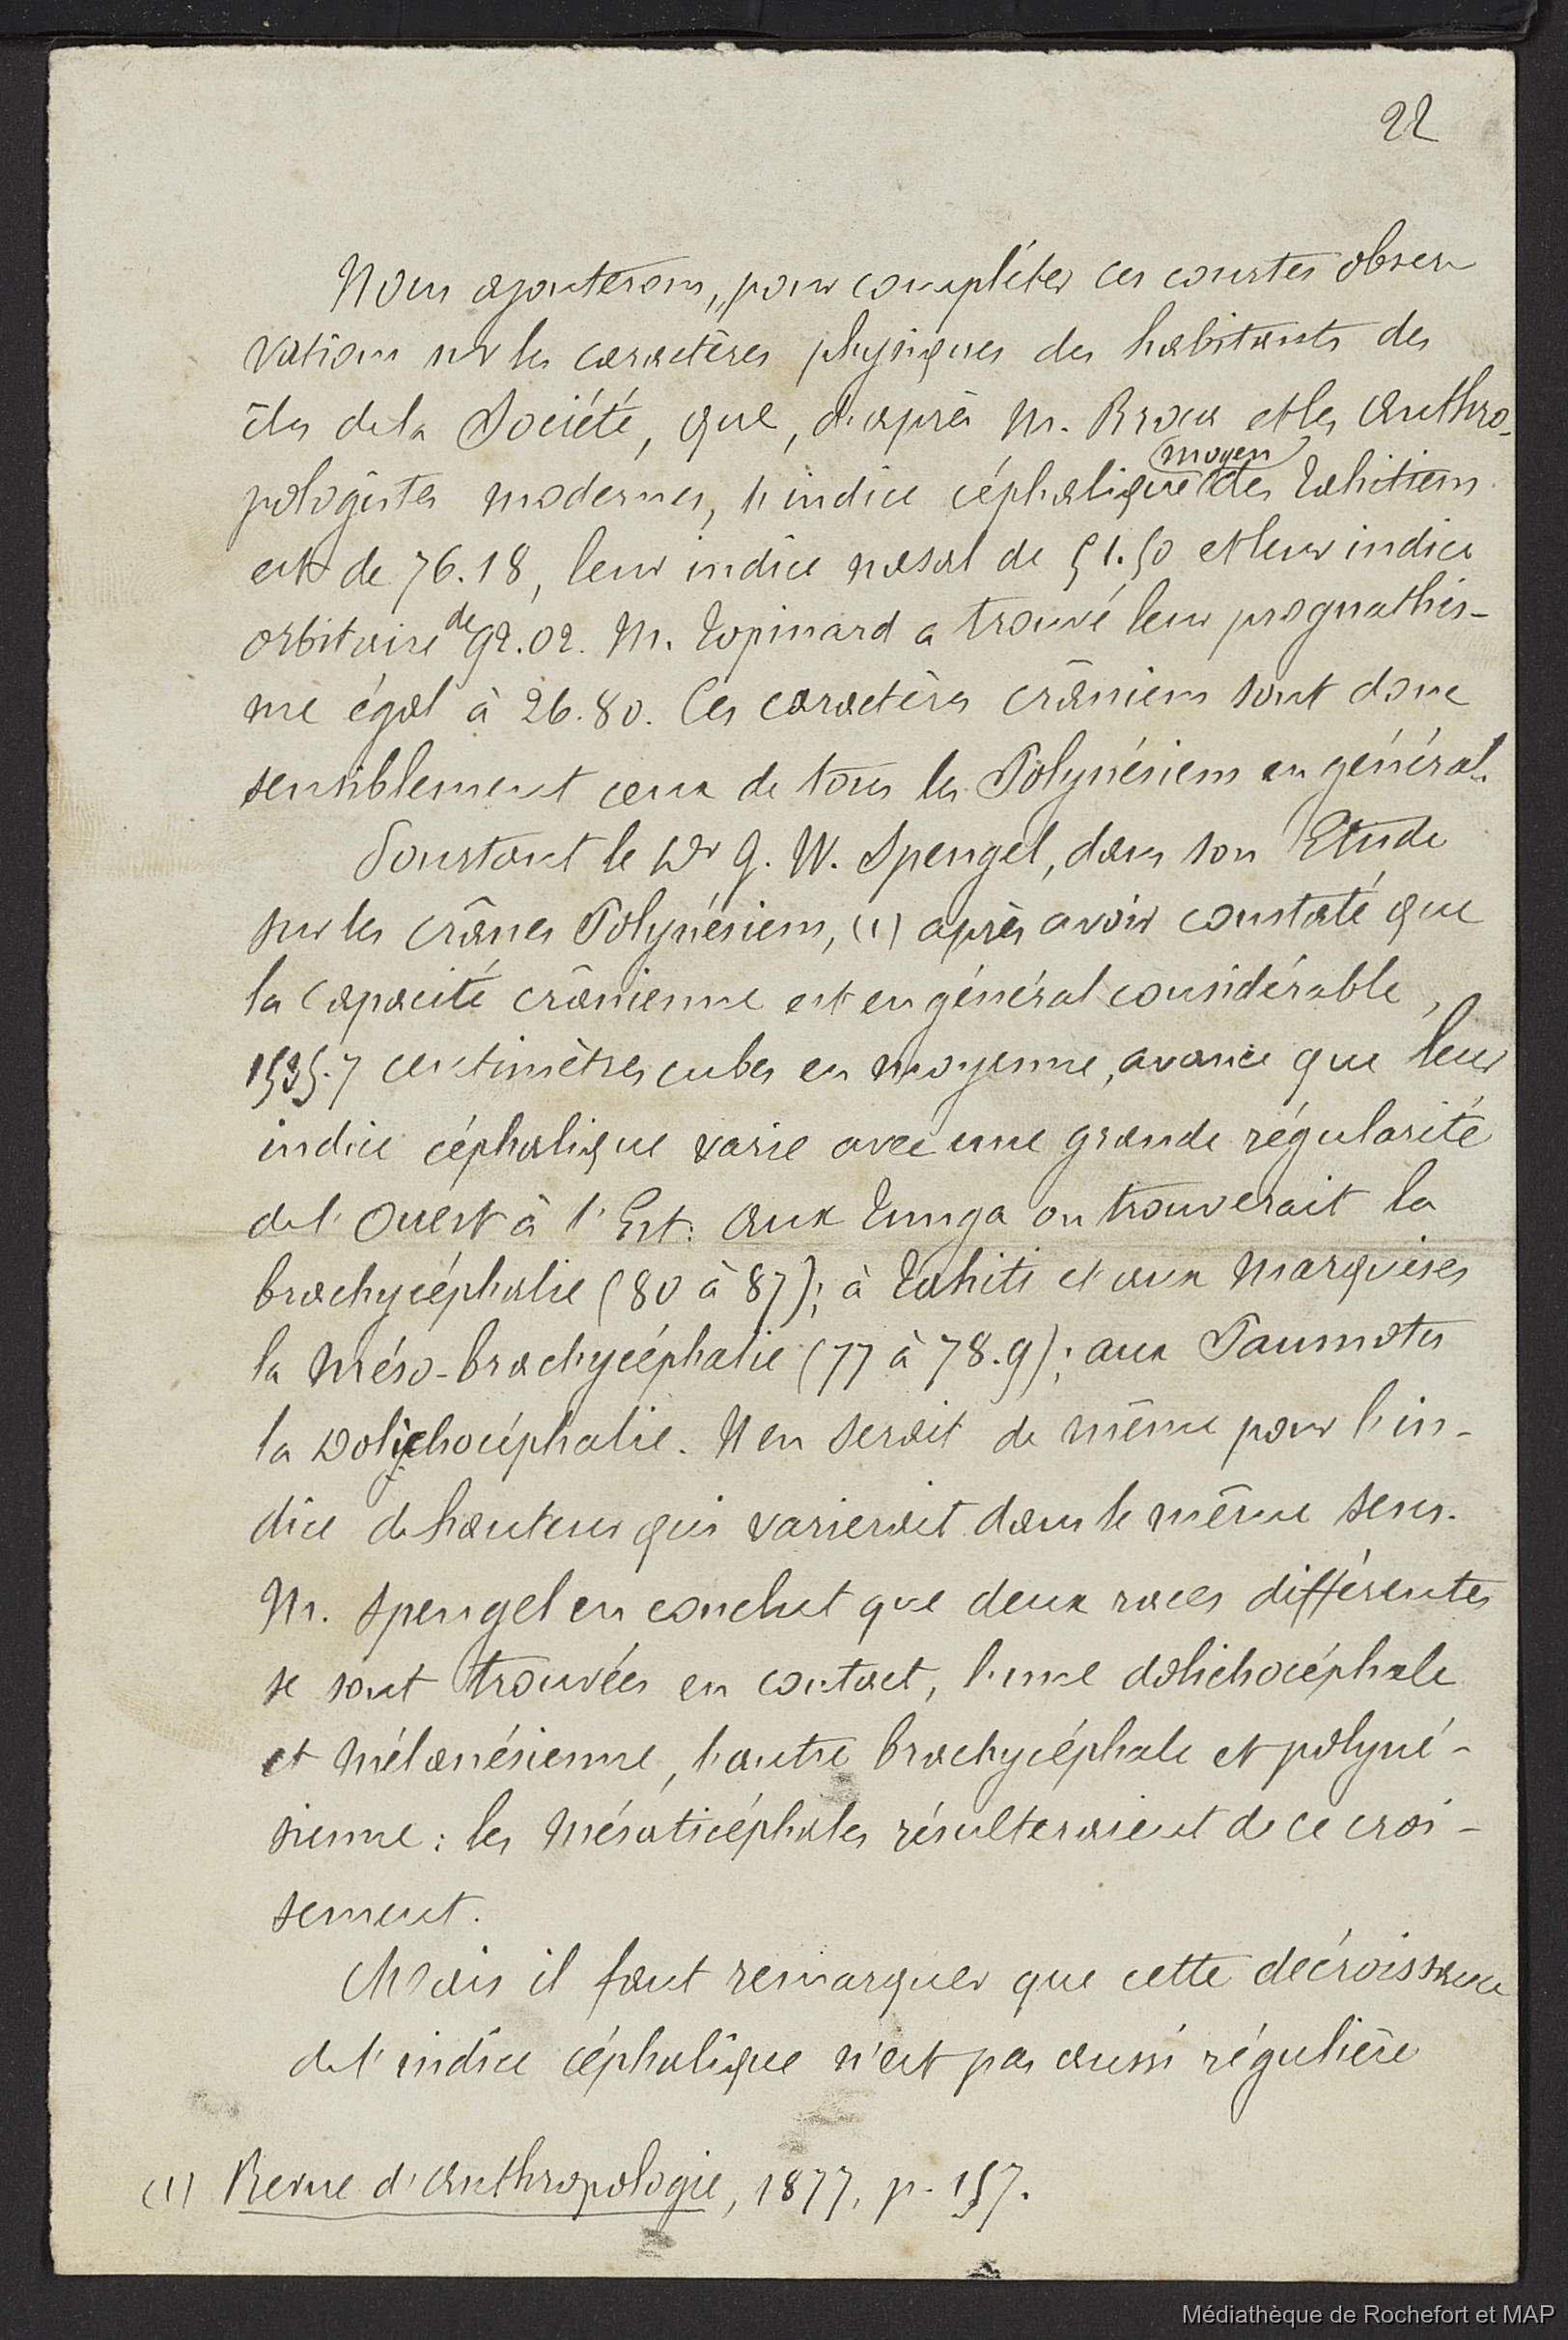 22
Nous ajouterons, pour compléter ces courtes obser
vations sur les caractères physiques des habitants des
îles de la Société, que, d'après M. Broca et les Anthro-
pologistes modernes, l'indice céphalique moyen des Tahitiens
est de 76.18, leur indice nasal de 51.50 et leur indice
orbitaire de 92.02. M. Topinard a trouvé leur prognathis-
me égal à 26.80. Ces caractères crâniens sont donc
sensiblement ceux de tous les Polynésiens en général.
Pourtant le Dr J. W. Spengel, dans son Etude
sur les crânes Polynésiens, (1) après avoir constaté que
la capacité crânienne est en général considérable,
1535.7 centimètres cubes en moyenne, avance que leur
indice céphalique varie avec une grande régularité
de l'Ouest à l'Est. Aux Tunga on trouverait la
brachycéphalie (80 à 87); à Tahiti et aux Marquises
la Méso-brachycéphalie (77 à 78.9); aux Paumotes
la Dolichocéphalie. Il en serait de même pour l'in-
dice de hauteur qui varierait dans le même sens.
M. Spengel en conclut que deux races différentes
se sont trouvées en contact, l'une dolichocéphale
et mélanésienne, l'autre brachycéphale et polyné-
sienne : les Mésaticéphales résulteraient de ce croi-
sement.
Mais il faut remarquer que cette décroissance
de l'indice céphalique n'est pas aussi régulière
(1) Revue d'Anthropologie, 1877, p. 157.
Médiathèque de Rochefort et MAP